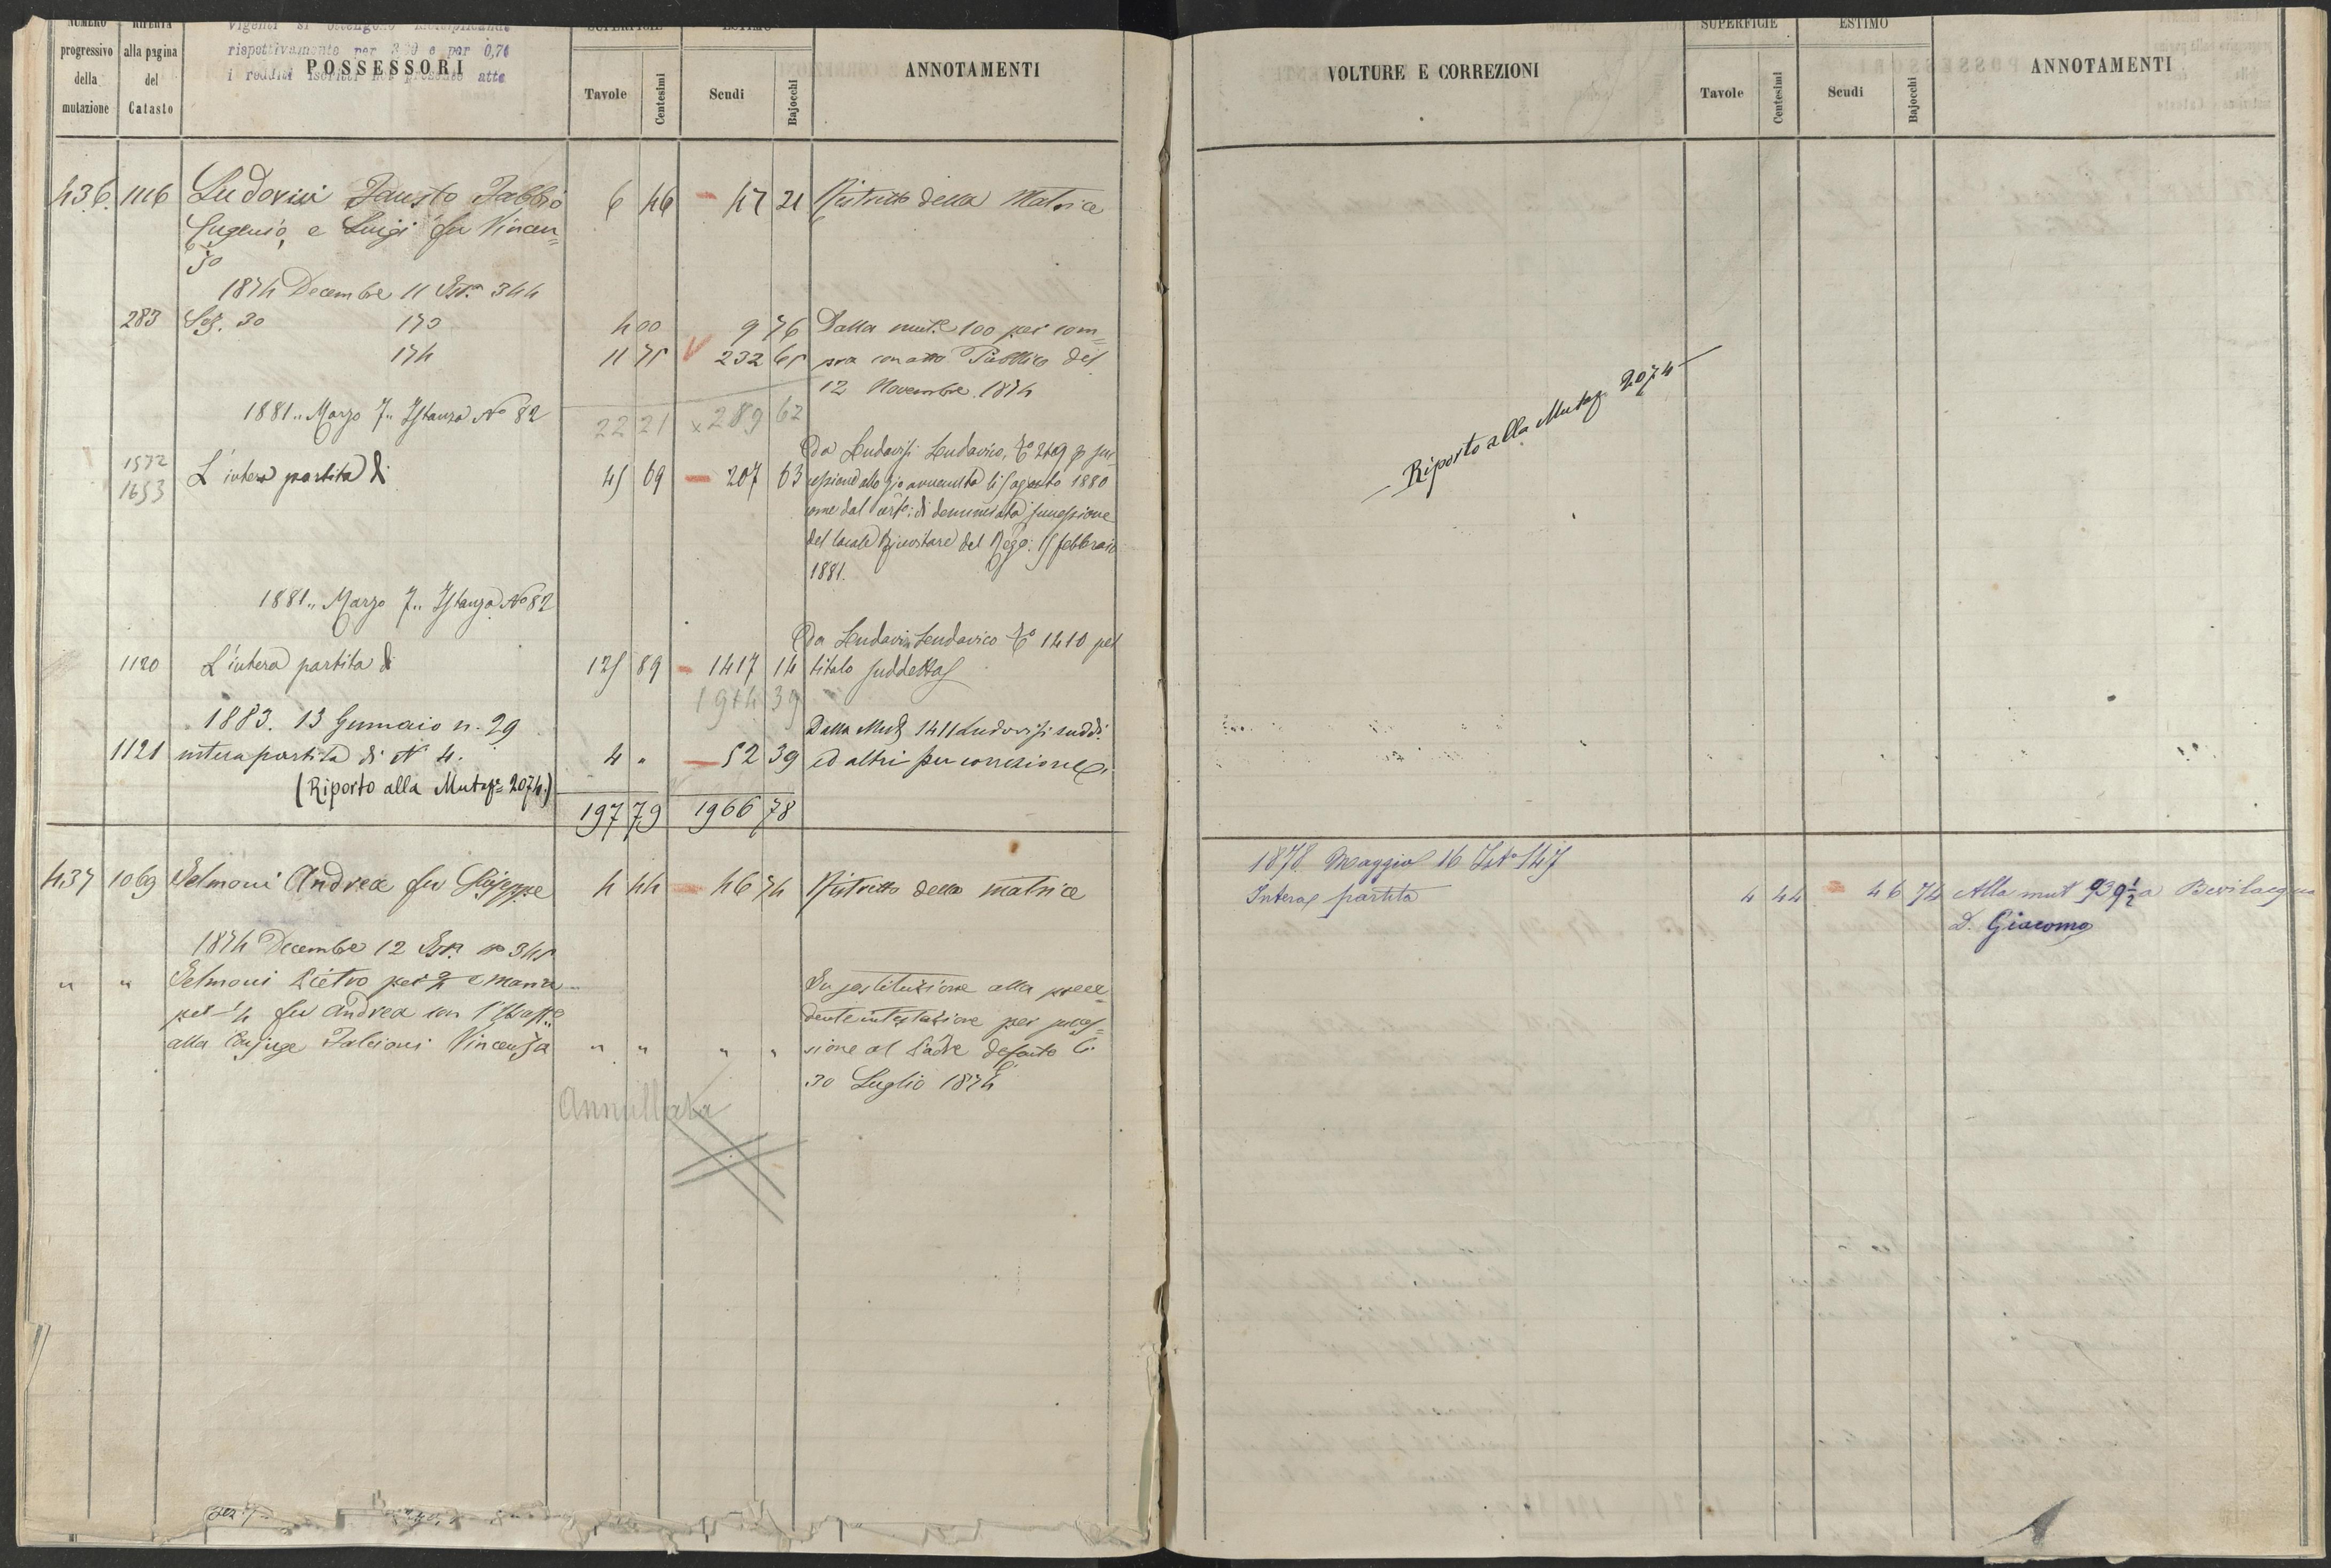 NUMERO
progressivo
della
mutazione
RIFERTA
alla pagina
del
Catasto
vigenti si ottengono moltiplicando
rispettivamente per 3,00 e per 0,70
i redditi iscritti nel presente atto
POSSESSORI
SUPERFICIE
Tavole
Centesimi
ESTIMO
Scudi
Bajocchi
ANNOTAMENTI
436. 1116 Ludovisi Fausto Fabbio 6 46 47 21 Ristretto della Matrice
Eugenio, e Luigi fu Vincen=
zo
1874 Decembre 11 Ist.a 344
283 Sez. 30 170 4 00 9 76 Dalla mut.e 100 per com=
174 11 75 232 65 pra con atto Pubblico del
12 Novembre 1874
1881 .. Marzo 7 .. Istanza No 82 22 21 x 289 62
Da Ludovisi Ludovico, 
1572
1653
L'intera partita di 45 69 207 63 
1880
come dal di denunciata successione
del locale Ricevitore del Reg.o: 15 febbraio
1881.
1881 .. Marzo 7 .. Istanza No 82
Da Ludovisi Ludovico 1410 pel
1120 L'intera partita di 125 89 1417 14 titolo suddetto
1914 39
1883. 13 Gennaio n. 29
Dalla Mut 1411 Ludovisi sudd:
1121 intera partita di N 4. 4 " 52 39 ed altri per correzione
(Riporto alla Mutaz.e 2074.)
197 79 1966 78
437 1069 Selmoni Andrea fu Giuseppe 4 44 46 74 Ristretto della matrice
1874 Decembre 12 Ist.a no 345
" " Selmoni Pietro per e Maria
per fu Andrea con
alla Conjuge Falcioni Vincenza " " " "
In sostituzione alla prece=
dente intestazione per succes=
sione al Padre defonto li
30 Luglio 1874
Annullata
VOLTURE E CORREZIONI
SUPERFICIE
Tavole
Centesimi
ESTIMO
Scudi
Bajocchi
ANNOTAMENTI
Riporto alla Mutaz. 2074
1878 Maggio 16 Ist.a 147
Intera partita 4 44 46 74 Alla mut 939 1/2 a Bevilacqua
D. Giacomo